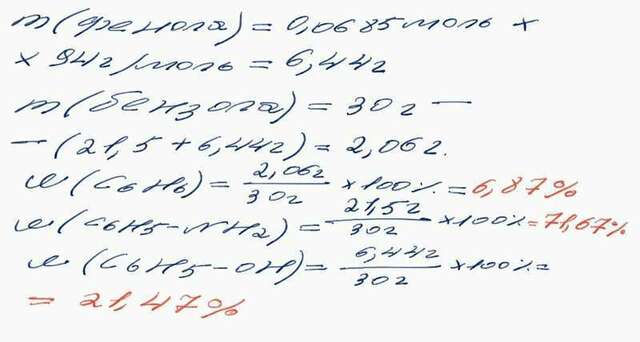 m(фенола) = 0,0685моль ×
× 94г/моль = 6,44г
m(бензола) = 30г —
— (21,5 + 6,44г) = 2,06г.
w(C6H6) = 2,06г/30г × 100% = 6,87%
w(C6H5-NH2) = 21,5г/30г × 100% = 71,67%
w(C6H5-OH) = 6,44г/30г × 100% =
= 21,47%